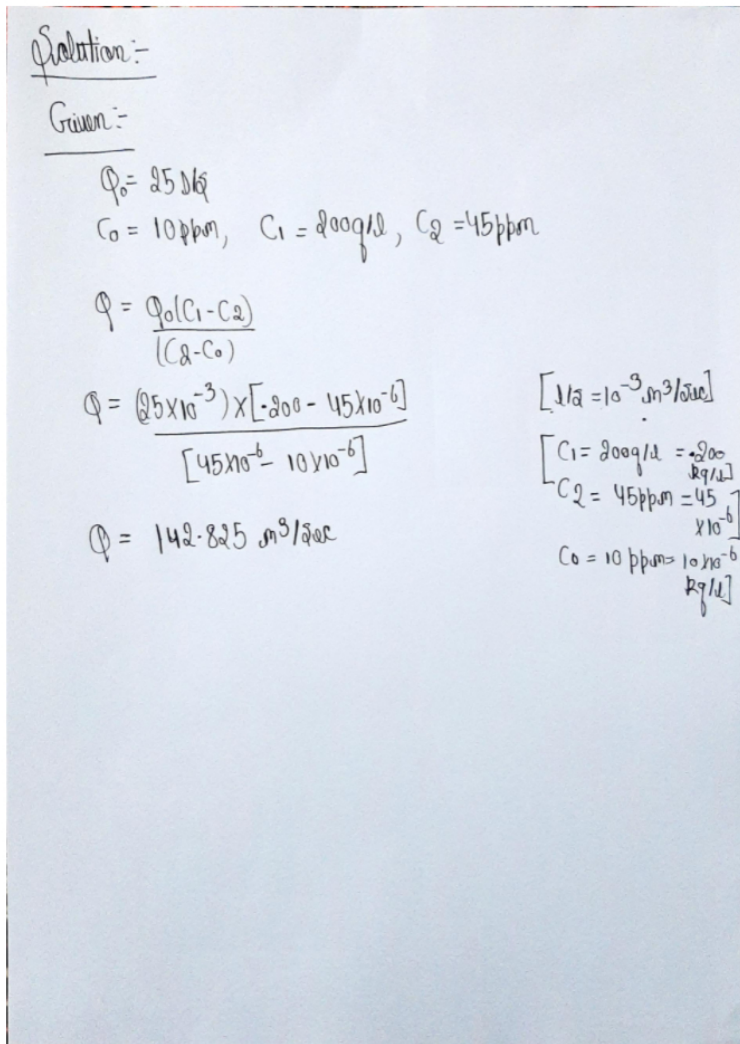 Solution:-
Given:-
Q₀ = 25 l/s
C₀ = 10 ppm, C₁ = 200g/l, C₂ = 45ppm
Q = Q₀(C₁-C₂)
(C₂-C₀)
Q = (25×10⁻³)×[.200 - 45×10⁻⁶]
[45×10⁻⁶ - 10×10⁻⁶]
Q = 142.825 m³/sec
[l/s = 10⁻³ m³/sec]
[C₁ = 200g/l = .200
kg/l]
C₂ = 45ppm = 45
×10⁻⁶]
C₀ = 10 ppm = 10×10⁻⁶
kg/l]